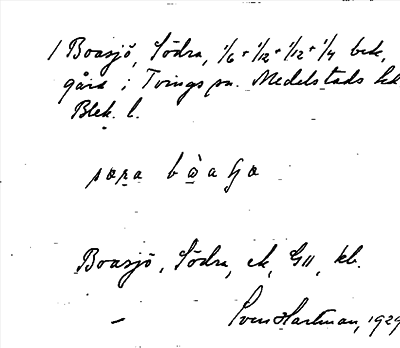 1 Boasjö, Södra, 1/6 + 1/12 + 1/12 + 1/4 bek.
gård i Tvings sn. Medelstads hd
Blek. l.
Boasjö, Södra, ek, G11, kb.
— Sven Hartman, 1929